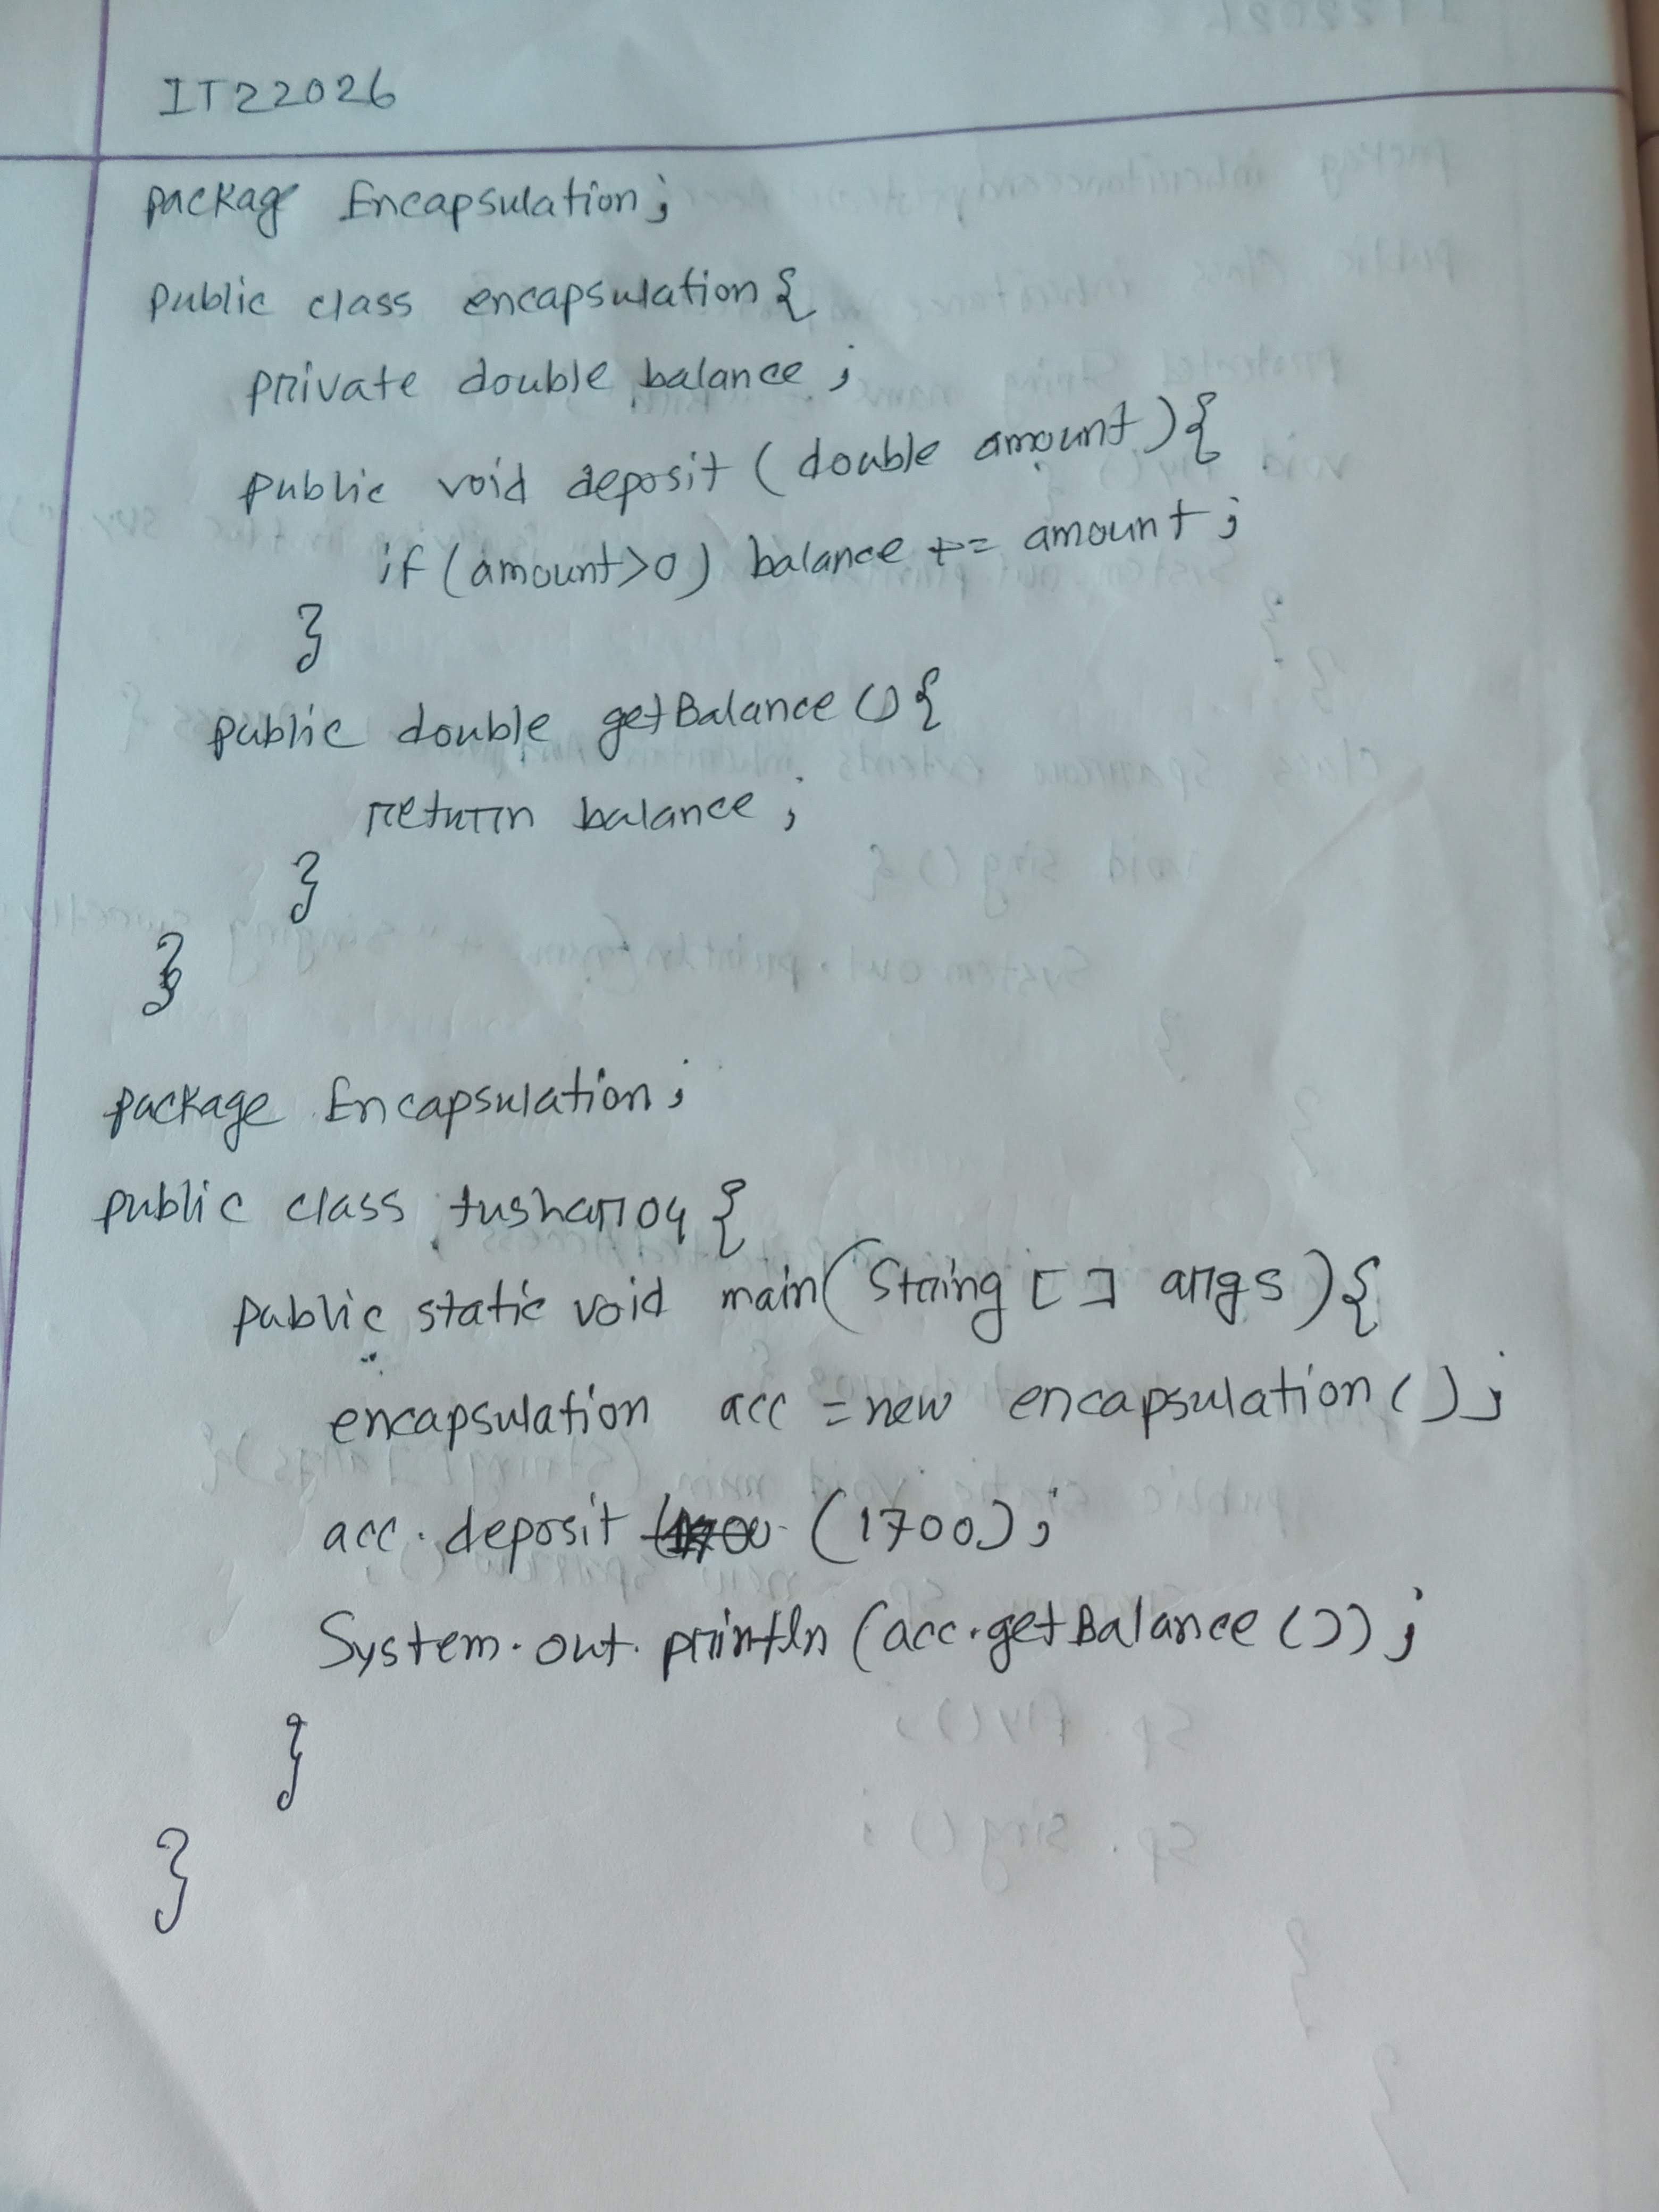 IT22026
package Encapsulation;
public class encapsulation {
private double balance;
public void deposit (double amount) {
if (amount>0) balance += amount;
}
public double getBalance () {
return balance;
}
}
package Encapsulation;
public class tushar04 {
public static void main (String [] args) {
encapsulation acc = new encapsulation ();
acc. deposit (1700);
System.out.println (acc.getBalance ());
}
}